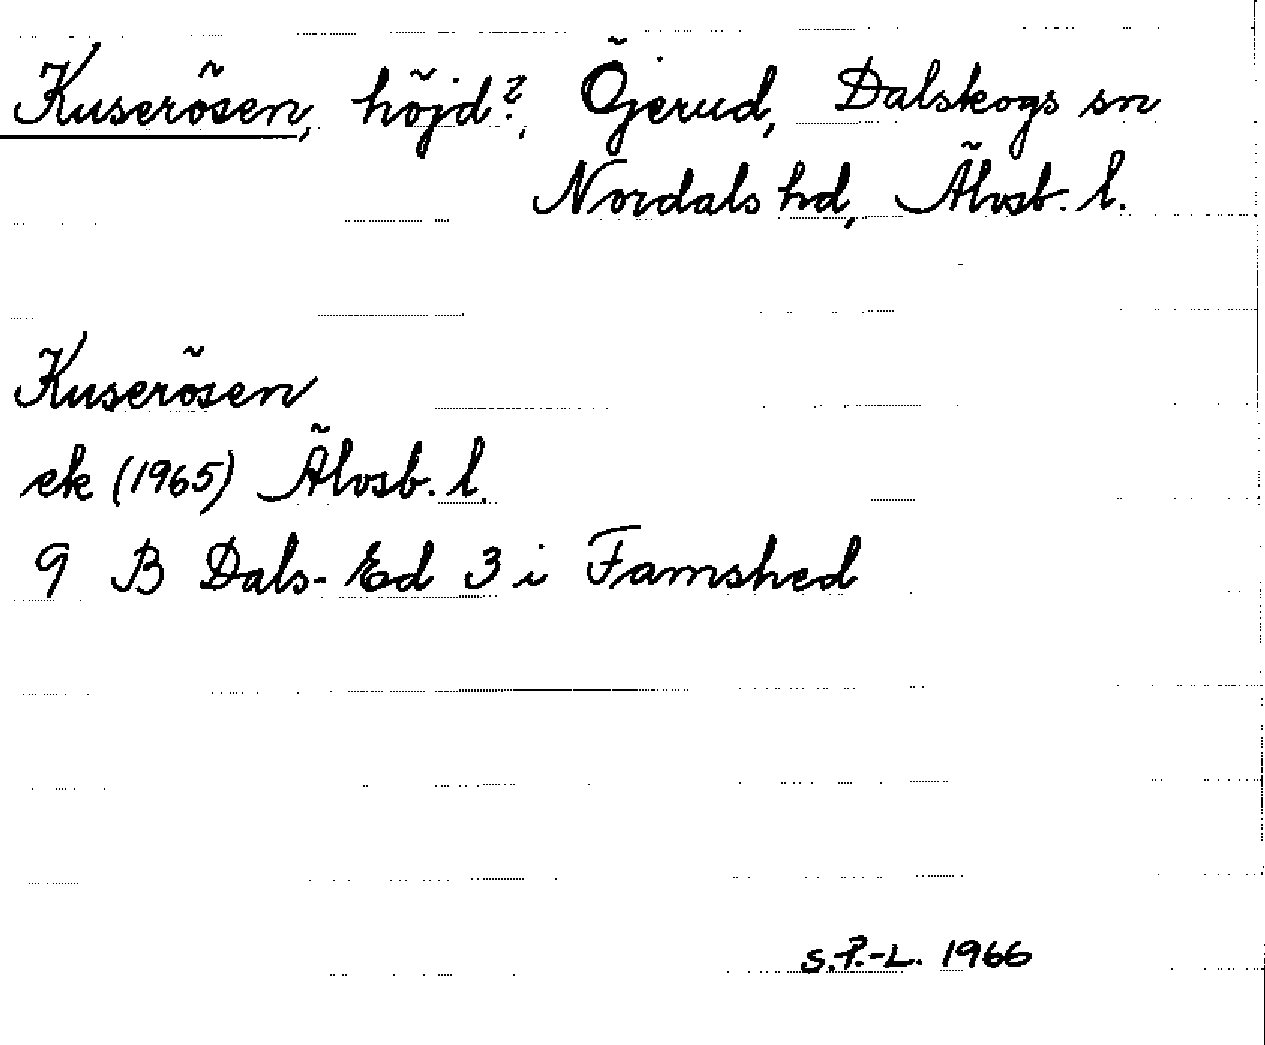 Kuserösen, höjd?, Öjerud, Dalskogs sn
Nordals hd, Älvsb. l.
Kuserösen
ek (1965) Älvsb. l.
9 B Dals-Ed 3 i Famshed
S.P.-L. 1966